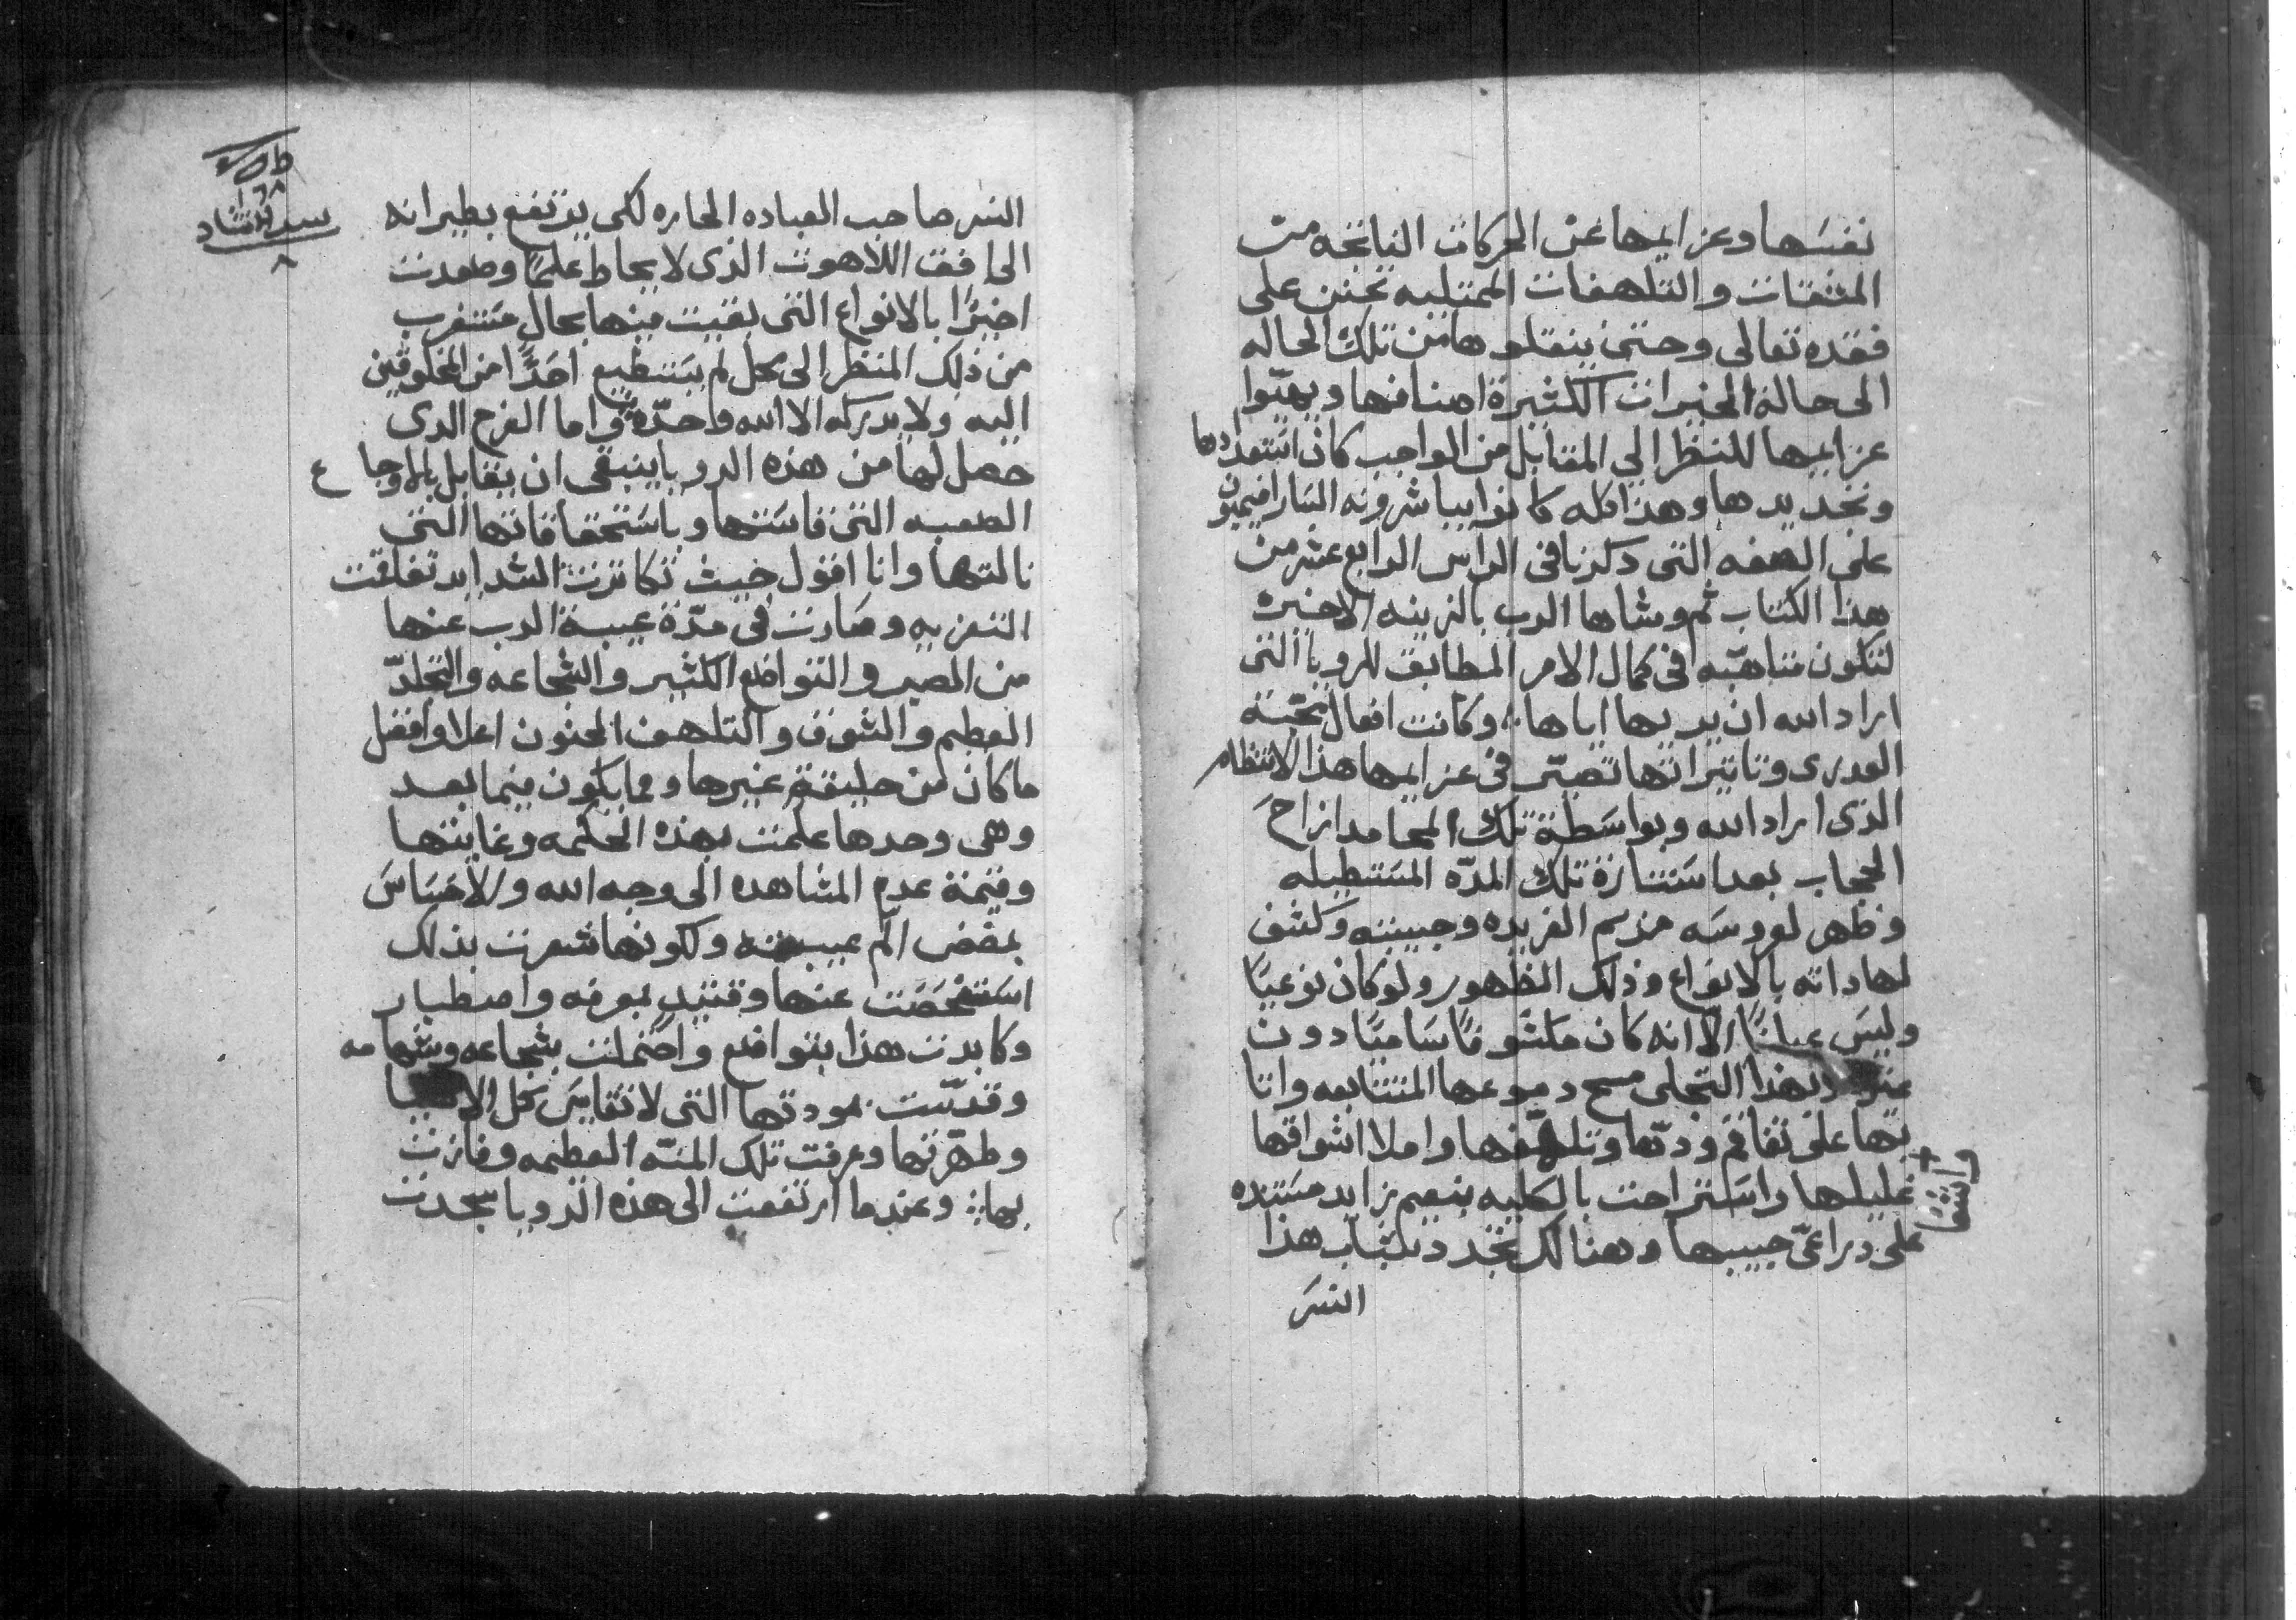 نفسها وعزايمها عن الحركات الناتجه من
المشقات والتلهفات الممتليه تحنن على
فقده تعالى وحتى ينقلوها من تلك الحاله
الى حالة الخيرات الكثيرة اصنافها ويهيّوا
عزايمها للنظر الى المقابل من الواجب كان استعدادها
وتجديدها وهذا كله كانوا يباشرونه السارافيميون
على الصفه التى ذكرنا فى الراس الرابع عشر من
هذا الكتاب ثم وشاها الرب بالزينه الاخيره
لتكون متاهبّه فى كمال الامر المطابق للرويا التى
اراد الله ان يريها اياها؛ وكانت افعال محبّة
العدرى وتاتيراتها تصيّر فى عزايمها هذا الانتظام
الذى اراد الله وبواسطة تلك المحامد ازاح
الحجاب بعد استتارة تلك المدّه المستطيله
وظهر لعروسه مريم الفريده وحبيبته وكشف
لها داته بالانواع وذلك الظهور ولو كان نوعيًا
وليس عيانًا الّا انه كان مكشوفًا ساميًا دون
وبهذا التجلى مسح دموعها المتتابعه واثا
بها على تفاقم ودّها وتلهّفها واملا اشواقها
واشفا
غليلها واستراحت بالكليه بنعيم زايد مستنده
على دراعىّ حبيبها وهنالك تجدد بشباب هذا
النسر
النسر صاحب العباده الحاره لكى يرتفع بطيرانه
الى افق اللاهوت الذى لا يحاط علمًا وصعدت
اخيرًا بالانواع التى بقيت منها بحال مستغرب
من ذلك المنظر الى محل لم يستطيع احدًا من المخلوقين
اليه ولا يدركه الا الله واحدّه واما الفرح الدى
حصل لها من هذه الرويا ينبغى ان يقابل بالاوجاع
الصعبه التى قاستها وباستحقاقاتها التى
نالتها وانا اقول حيث تكاترت الشدايد تفاقمت
التعزيه وصارت فى مدّة غيبة الرب عنها
من الصبر والتواضع الكثير والشجاعه والتجلدّ
العظيم والشوق والتلهف الحنون اعلا وافضل
ما كان من خليقة غيرها ومما يكون فيما بعد
وهى وحدها علمت بهذه الحكمه وغايتها
وقيمة عدم المشاهده الى وجه الله والاحساس
بمضض الم غيبته ولكونها شعرت بذلك
استفحصت عنها بمعرفه واصطبار
وكابدت هذا بتواضع واحتملت بشجاعه وشهامه
وقدسّت بمودتها التى لا تقايس كل الاشيا
وطهّرتها وعرفت تلك المنّه العظيمه وفازت
بها؛ وعندما ارتفعت الى هذه الرويا سجدت